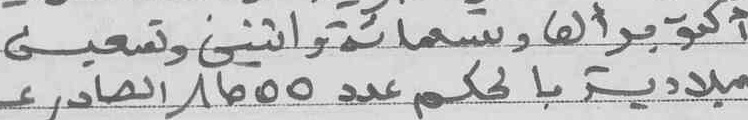 أكتوبر ألف وتسعمائة واثنين وتسعين
ميلادية بالحكم عدد 18655 الصادر ع